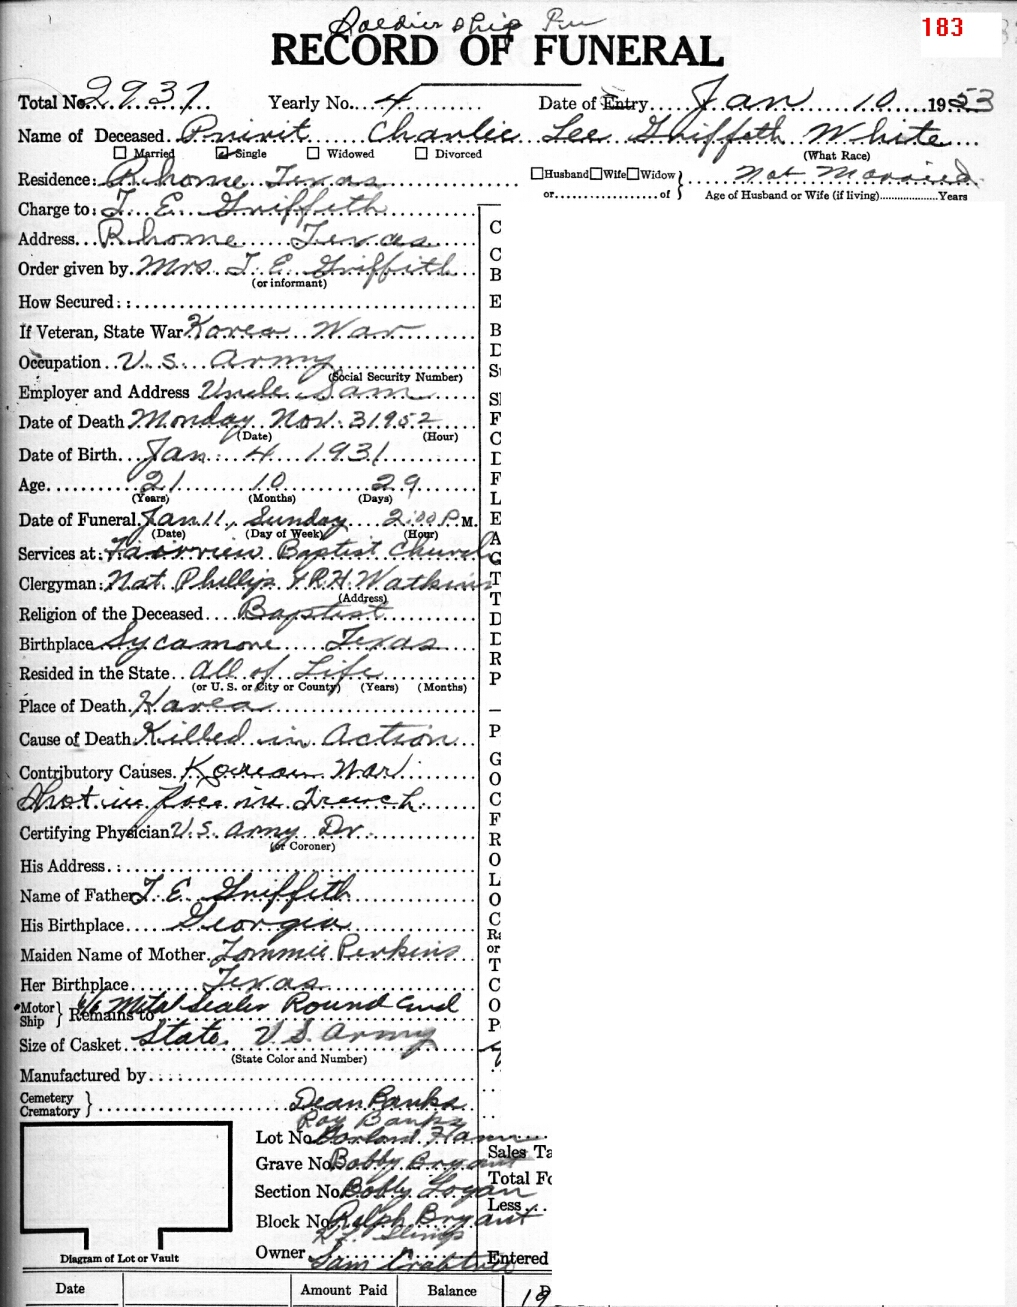 Soldier ship
183
RECORD OF FUNERAL
Total No. 2937 Yearly No. 4 Date of Entry Jan 10 1953
Name of Deceased Privit Charlie Lee Griffeth White
Married Single Widowed Divorced (What Race)
Residence: Rhome Texas Husband Wife Widow } Not Married
or of } Age of Husband or Wife (if living) Years
Charge to: T. E. Griffith
Address Rhome Texas C
Order given by Mrs. T. E. Griffith C
(or informant) B
How Secured: : E
If Veteran, State War Korea War B
D
Occupation U. S. Army S
(Social Security Number)
Employer and Address Uncle Sam S
Date of Death Monday Nov. 3 1952 F
(Date) (Hour) C
Date of Birth Jan. 4 1931 D
Age 21 10 29 F
(Years) (Months) (Days) L
Date of Funeral Jan 11, Sunday 2:00 P.M. E
(Date) (Day of Week) (Hour) A
Services at: Fairview Baptist Church G
Clergyman: Nat. Phillips & R.H. Watkins T
(Address) T
Religion of the Deceased Baptist D
Birthplace Sycamore Texas D
R
Resided in the State All of Life P
(or U. S. or City or County) (Years) (Months)
Place of Death Korea
Cause of Death Killed in Action P
G
Contributory Causes Korean War O
Shot in face in Trench C
F
Certifying Physician U.S. Army Dr. R
(or Coroner)
His Address O
L
Name of Father T. E. Griffith O
His Birthplace Georgia C
Maiden Name of Mother Tommie Perkins or
T
Her Birthplace Texas C
Motor Ship } Remains to 6/6 Metal Sealer Round End O
P
Size of Casket State U S Army
(State Color and Number)
Manufactured by
Cemetery Crematory } Dean Banks
Roy Banks
Lot No. Garland Hamm
Sales Ta
Grave No. Bobby Bryant
Total Fo
Section No. Bobby Logan
Less
Block No. Ralph Bryant
Owner Sam Crabtree
Entered
Diagram of Lot or Vault
Date Amount Paid Balance D
19